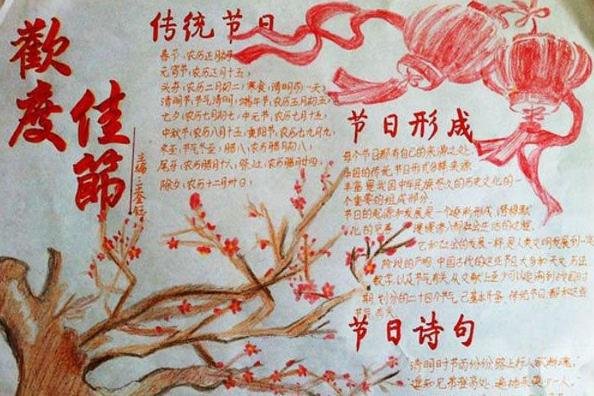 歡度
佳節
主编：王金钰
传统节日
春节：农历正月初一
元宵节：农历正月十五；
头牙：农历二月初二；寒食：清明前一天；
清明节：节气清明；端午节：农历五月初五；
七夕：农历七月初七；中元节：农历七月十五；
中秋节：农历八月十五；重阳节：农历九月九
冬至：节气冬至；腊八：农历腊月初八；
尾牙：农历腊月十六；祭灶：农历腊月廿四；
除夕：农历十二月卅日；
节日形成
每个节都有自己的来源之处，
各国的传统节日形式多样，来源
丰富，是我国中华民族悠久的历史文化的一
个重要的组成部分。
节日的起源和发展是一个逐渐形成，潜移默
化的完善，慢慢渗入到社会生活的过程。
它和社会的发展一样，是人类文明发展到一定
阶段的产物，中国古代的这些节日大多和天文、历法
数学，以及节气有关，从文献上至少可以追溯到战国时
期，划分的二十四个节气，已基本齐备，传统节日都和这些
节日有关。
节日诗句
清明时节雨纷纷，路上行人欲断魂。
遥知兄弟登高处，遍插茱萸少一人。